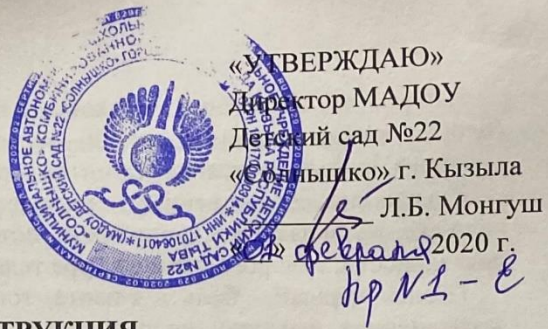 «УТВЕРЖДАЮ»
Директор МАДОУ
Детский сад №22
«Солнышко» г. Кызыла
Л.Б. Монгуш
«01» февраля 2020 г.
Пр №1 - Е
ТРУКЦИЯ